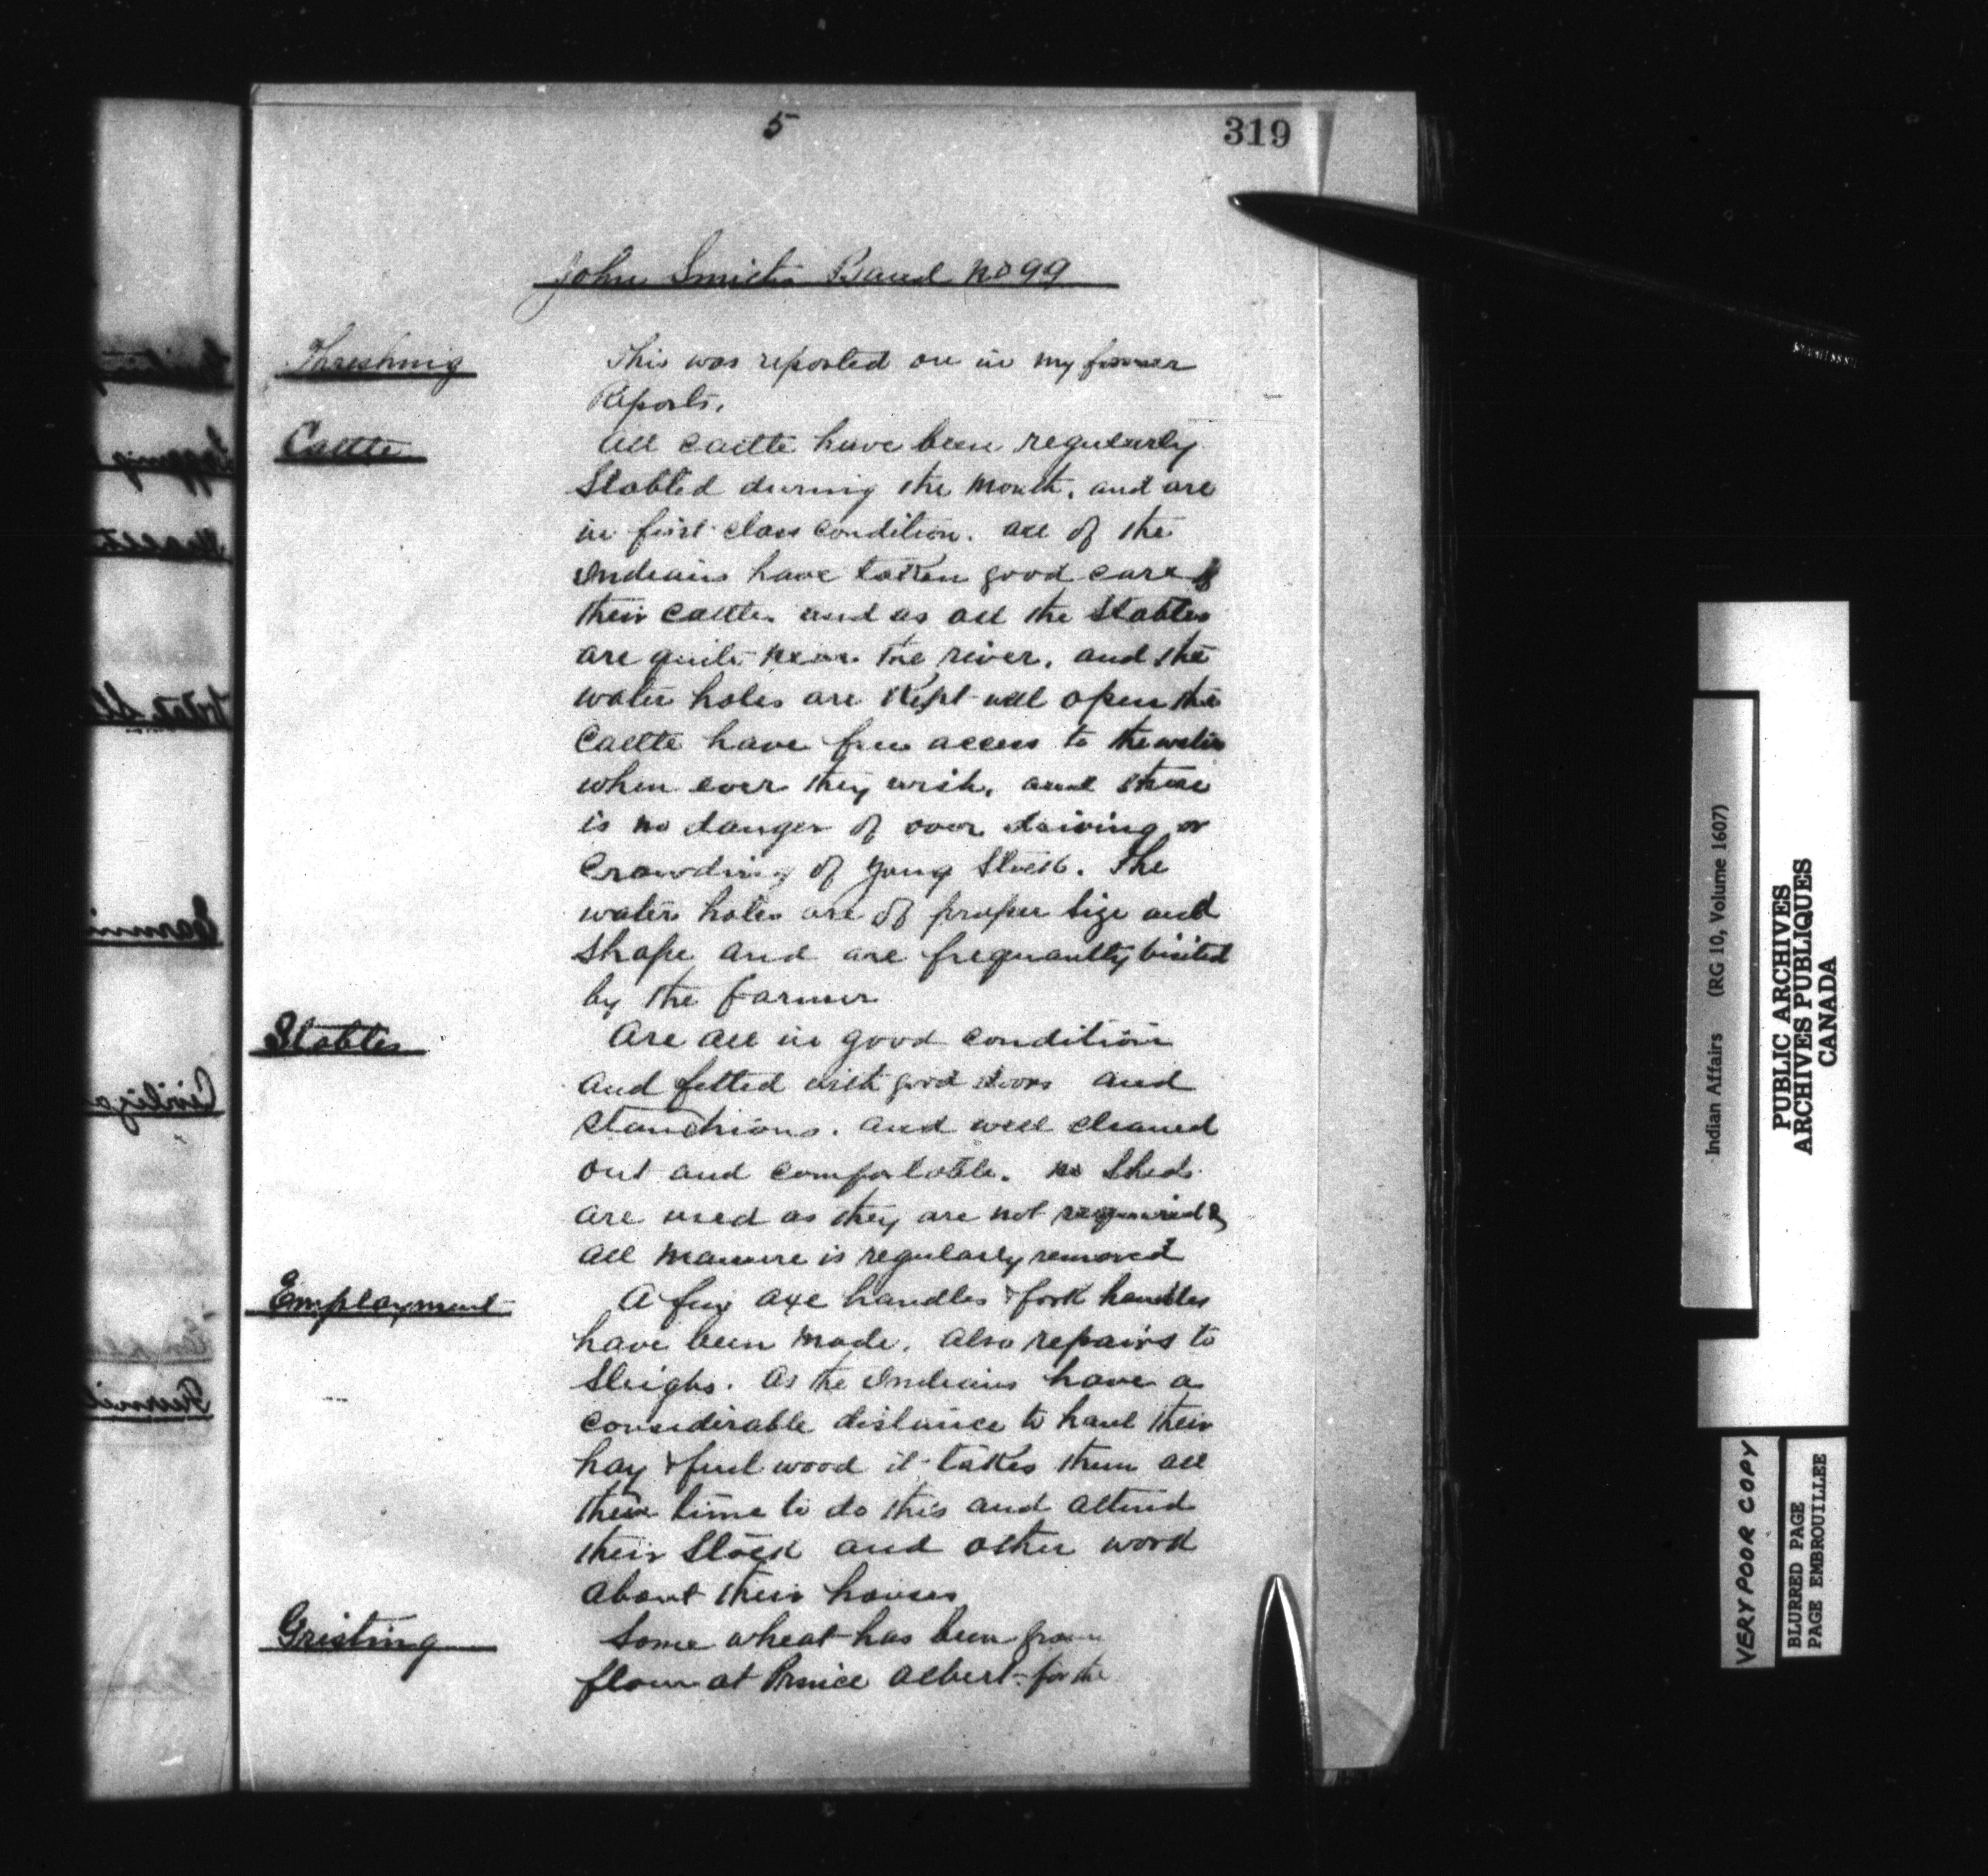 5
319
John Smith Band No 99
Threshing
This was reported on in my former
Reports.
Cattle
All cattle have been regularly
Stabled during the month, and are
in first class condition. all of the
Indians have taken good care of
their cattle. and as all the Stables
are quite near the river, and the
water holes are kept well open the
Cattle have free access to the water
when ever they wish, and there
is no danger of over driving or
Crowding of young Stock. The
water holes are of proper size and
shape and are frequantly visited
by the Farmer
Stables
Are all in good condition
and fitted with good doors and
stanchions. and well cleaned
out and comfortable. no Sheds
are used as they are not required &
all manure is regularly removed
Employment
A few axe handles & fork handles
have been made. also repairs to
Sleighs. As the Indians have a
considerable distance to haul their
hay & fuel wood it takes them all
their time to do this and attend
their Stock and other work
about their houses
Gristing
Some wheat has been
flour at Prince Albert for the
Indian Affairs (RG 10, Volume 1607)
PUBLIC ARCHIVES
ARCHIVES PUBLIQUES
CANADA
VERY POOR COPY
BLURED PAGE
PAGE EMBROUILLEE